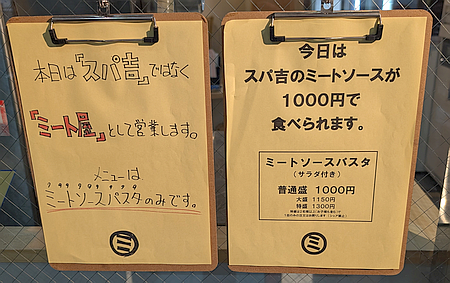 本日は「スパ吉」ではなく
「ミート屋」として営業します。
メニューは
ミートソースパスタのみです。
ミ
今日は
スパ吉のミートソースが
1000円で
食べられます。
ミートソースパスタ
(サラダ付き)
普通盛 1000円
大盛 1150円
特盛 1300円
ミ